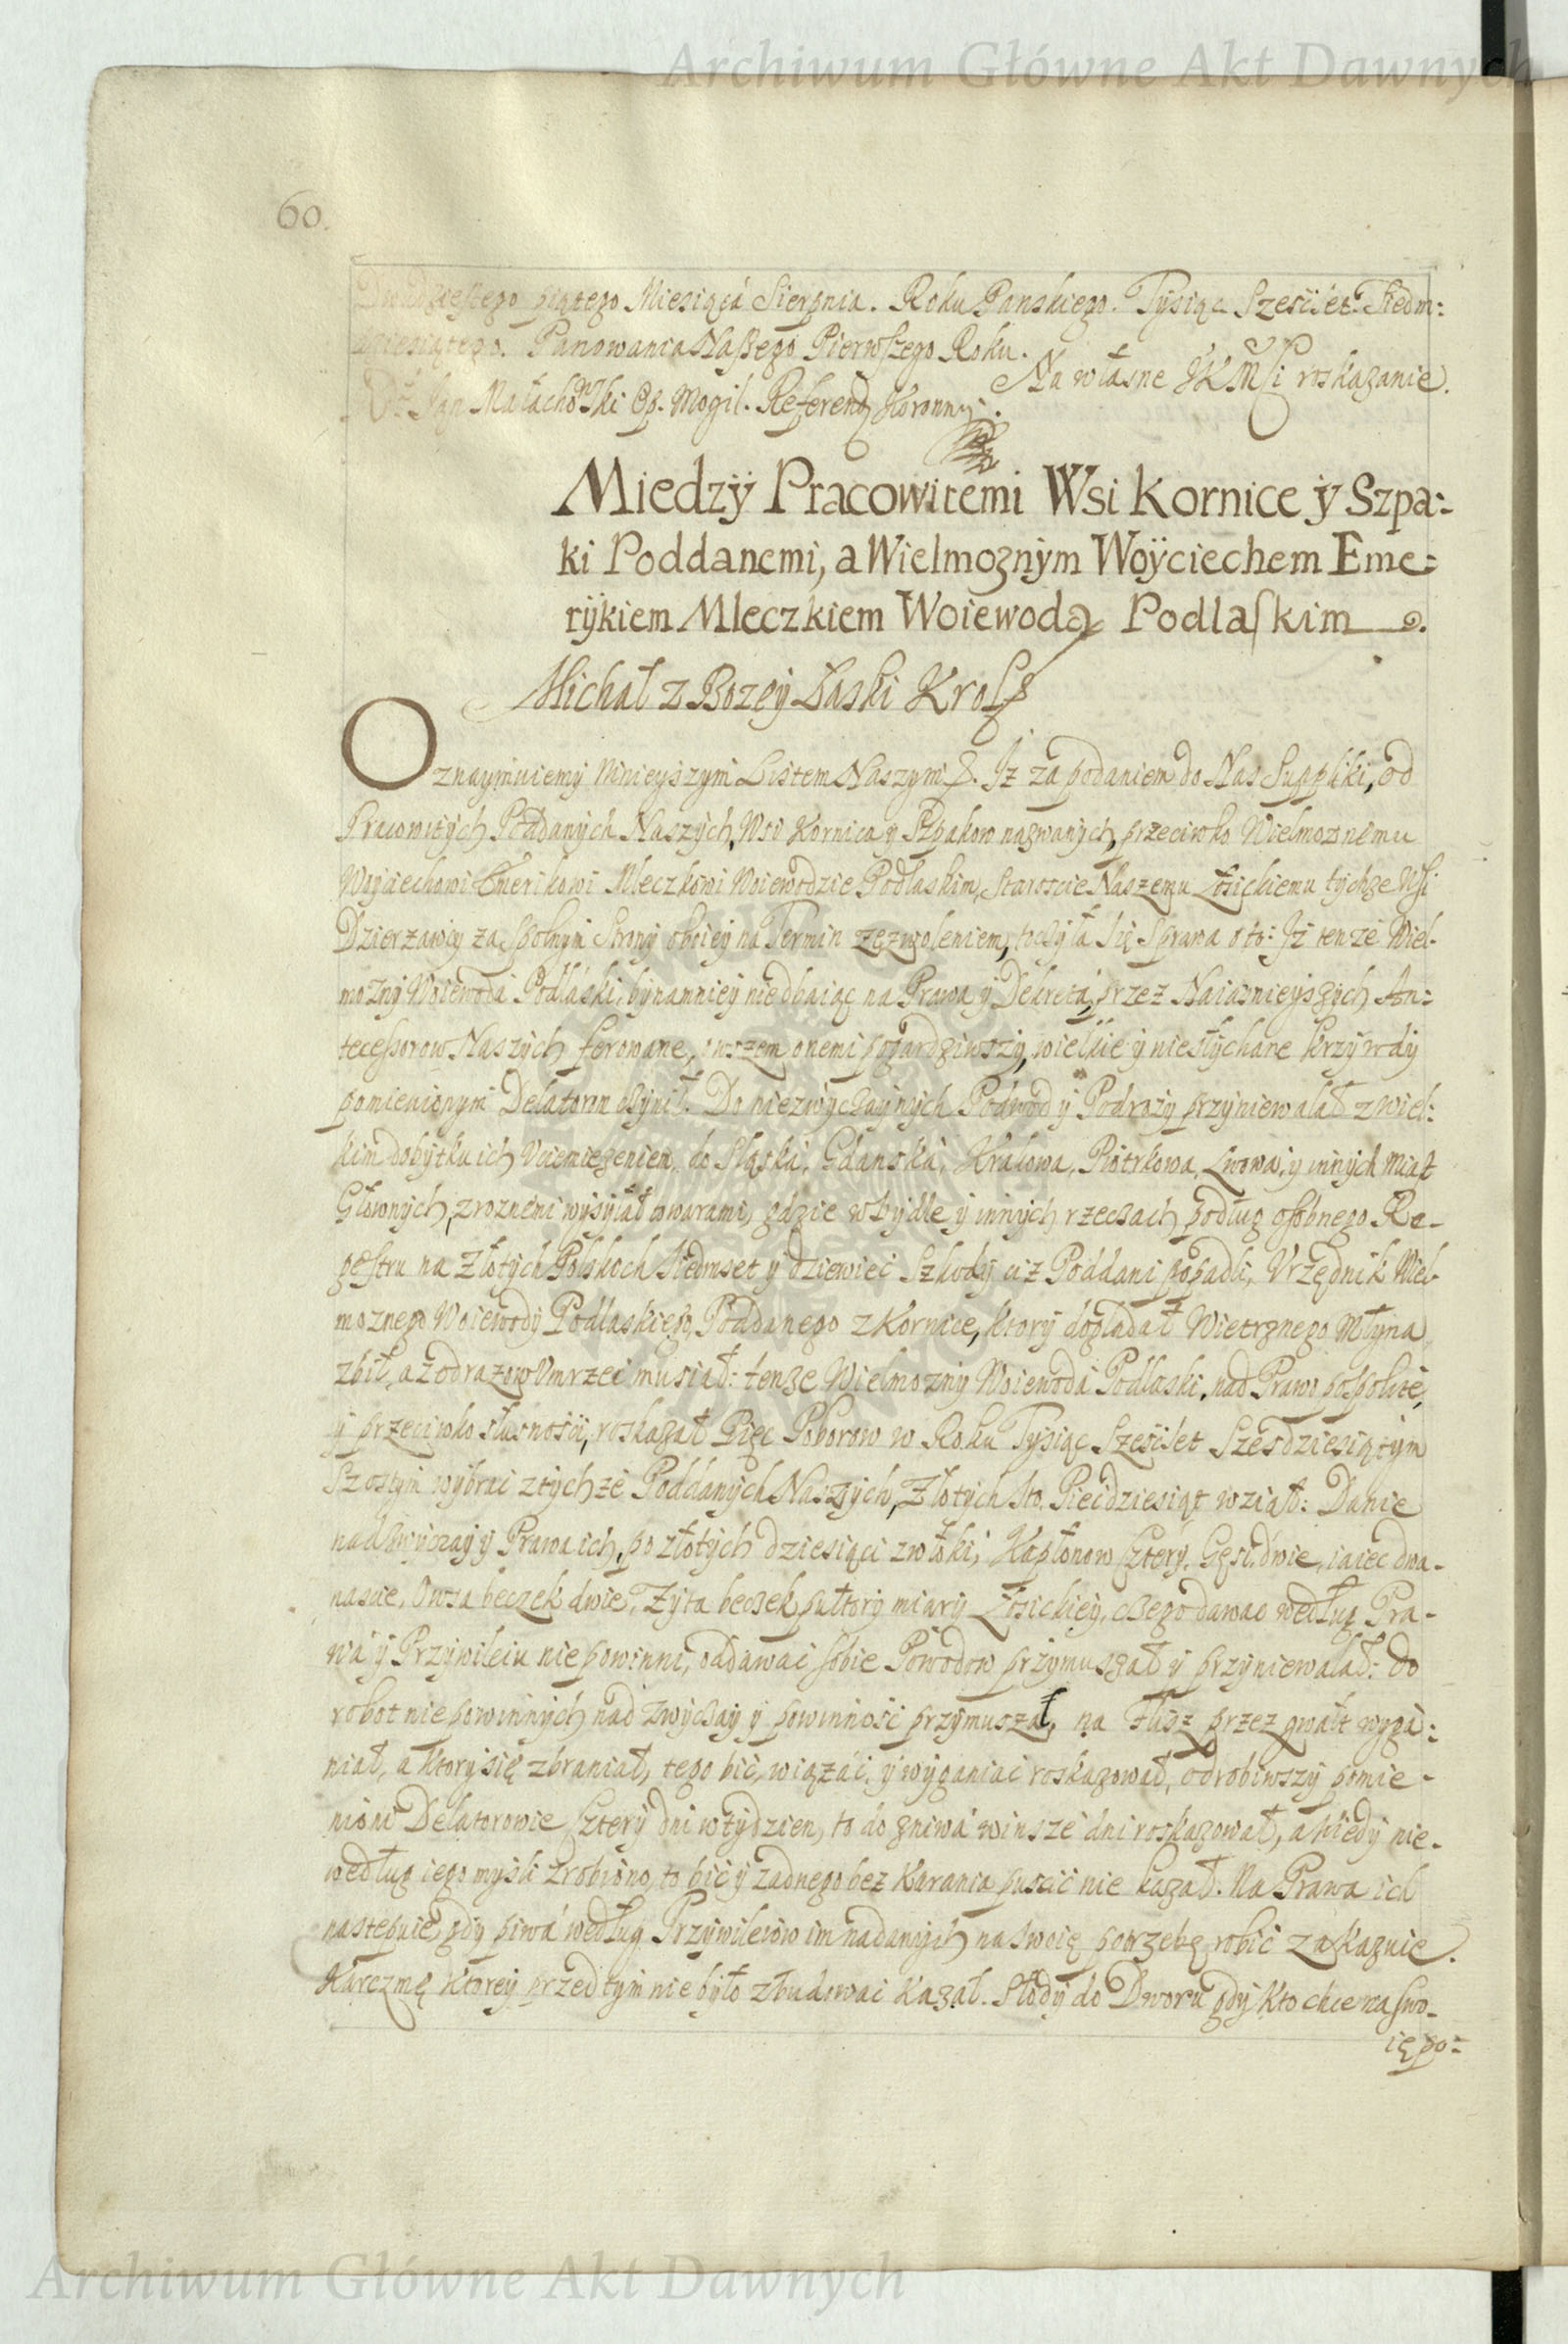 Archiwum Główne Akt Dawnych
60.
Dwudziestego piątego Miesiąca Sierpnia. Roku Panskiego. Tysiąc Szescset Siedm:
dziesiątego. Panowania Naszego Pierwszego Roku.
Na własne JKMści roskazanie.
Jan Małachowski Ep. Mogil. Referend Koronny.
Miedzÿ Pracowitemi Wsi Kornice ÿ Szpa:
ki Poddanemi, a Wielmoznÿm Woÿciechem Eme:
rÿkiem Mleczkiem Woiewodą Podlaskim
Michał z Bozeÿ Łaski Krol
Oznaymuiemÿ Ninieyszym Listem Naszym. Jż za podaniem do Nas Suppliki, od
Pracowitÿch Poddanÿch Naszÿch, Wsi Kornica ÿ Szpakow nazwanÿch, przeciwko Wielmoznemu
Woÿciechowi Emerikowi Mleczkowi Woiewodzie Podlaskim, Staroscie Naszemu Łosickiemu tÿchze Wsi
Dzierzawcÿ za spolnÿm Stronÿ oboieÿ na Termin zezwoleniem, toczÿła się Sprawa oto: Jż tenze Wiel-
moznÿ Woiewoda Podlaski, bÿnamnieÿ niedbaiąc na Prawa ÿ Dekreta, przez Naiasnieÿszÿch An:
tecessorow Naszÿch ferowane, owszem onemi pogardziwszÿ, wielkie ÿ niesłÿchane krzÿwdÿ
pomienionÿm Delatorom czÿnił. Do niezwÿczaÿnÿch Podwod ÿ Podrozÿ przÿniewalał z wiel:
kim dobÿtku ich Uciemięzeniem, do Sląska, Gdanska, Krakowa, Piotrkowa, Lwowa, ÿ innÿch Miast
Głownÿch, z roznemi wÿsÿłał towarami, gdzie w bÿdle ÿ innÿch rzeczach podług osobnego Re-
gestru na Złotÿch Polskich siedmset ÿ dziewiec Szkodÿ ciz Poddani popadli, Vrzędnik Wiel-
moznego Woiewodÿ Podlaskiego, Poddanego z Kornice, ktorÿ dogladał Wietrznego Młÿna
zbił, aż od razow Vmrzec musiał: tenze Wielmoznÿ Woiewoda Podlaski, nad Prawo pospolite,
ÿ przeciwko słusnosci, roskazał Pięc Poborow w Roku Tÿsiąc Szescset Szesdziesiątÿm
Szostÿm wÿbrac z tÿchze Poddanÿch Naszÿch, Złotÿch sto Piecdziesiąt wział: Danie
nad zwÿczaÿ ÿ Prawa ich, po złotÿch dziesiąci z włoki, Kapłonow sterÿ, Gęsi dwie, iaiec dwa-
nascie, Owsa beczek dwie, Zÿta beczek pułtorÿ miarÿ Łosickieÿ, czego dawac według Pra-
wa ÿ Przÿwileiu nie powinni, oddawac sobie Powodow przÿmuszał ÿ przÿniewalał: do
robot nie powinnÿch nad zwÿczaÿ ÿ powinnosc przÿmuszał, na Tłusz przez gwałt wÿga:
niał, a ktorÿ się zbraniał, tego bic, wiązac, ÿ wÿganiac roskazował, odrobiwszÿ pomie-
nioni Delatorowie sterÿ dni w tÿdzien, to do zniwa w insze dni roskazował, a kiedÿ nie-
według iego mÿsli zrobiono, to bic ÿ zadnego bez Karania puscic nie kazał. Na Prawa ich
nastepuie, gdÿ piwa według Przÿwileiow im nadanÿch na swoię potrzebę robic zakazuie.
Karczmę ktoreÿ przedtÿm nie bÿło zbudowac kazał. Słodÿ do Dworu gdÿ kto chce na swo-
ię po:
Archiwum Główne Akt Dawnych